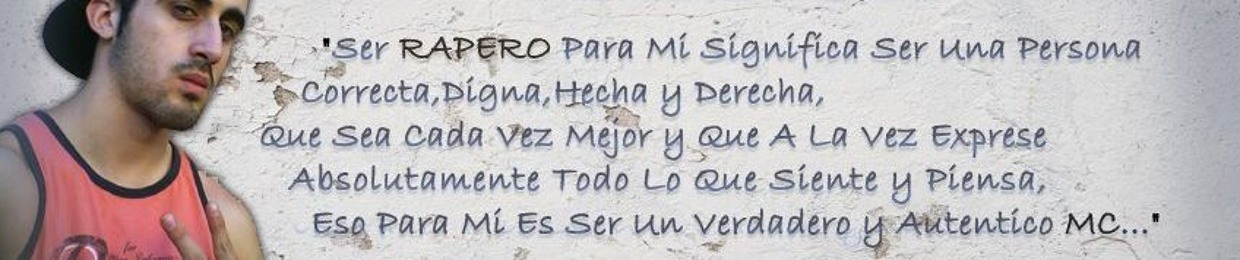 "Ser RAPERO Para Mí Significa Ser Una Persona
Correcta,Digna,Hecha y Derecha,
Que Sea Cada Vez Mejor y Que A La Vez Exprese
Absolutamente Todo Lo Que Siente y Piensa,
Eso Para Mí Es Ser Un Verdadero y Autentico MC..."